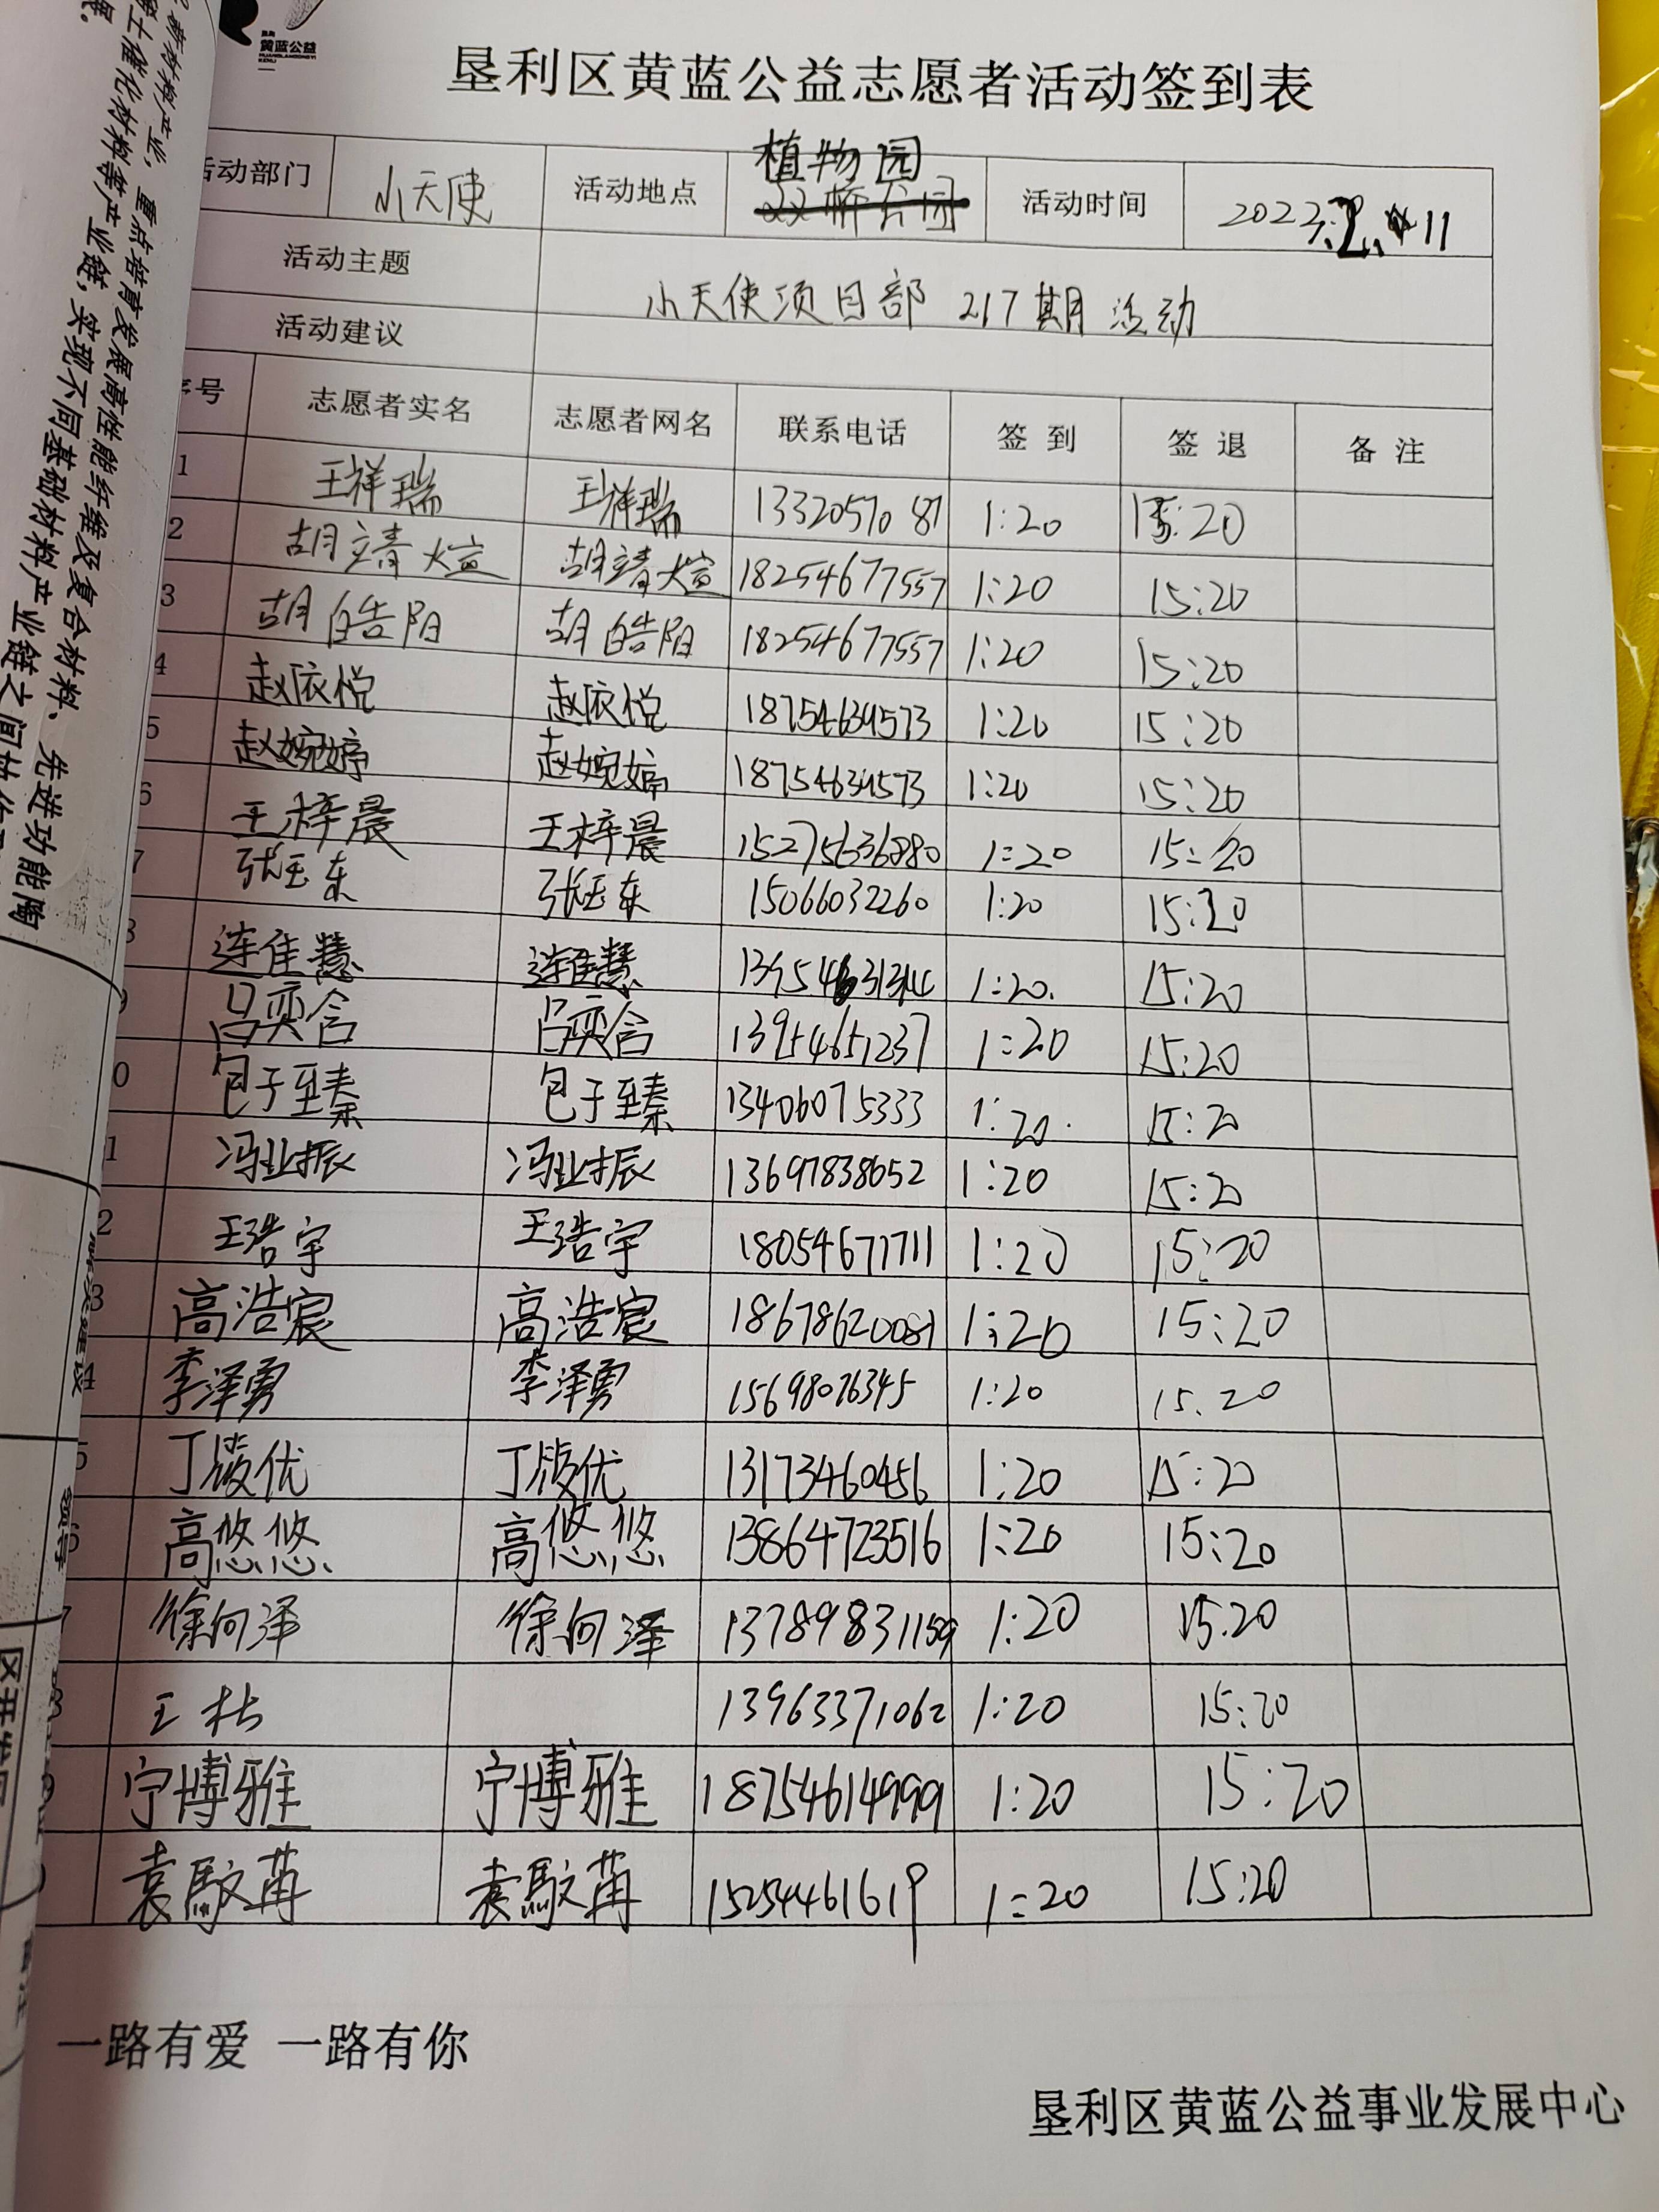 黄蓝公益
垦利区黄蓝公益志愿者活动签到表
活动部门 小天使 活动地点 植物园 活动时间
活动主题 小天使项目部 217期 活动
活动建议
序号 志愿者实名 志愿者网名 联系电话 签 到 签 退 备 注
1 王祥瑞 王祥瑞 1:20 15:20
2 胡靖煊 胡靖煊 18254677557 1:20 15:20
3 胡皓阳 胡皓阳 18254677557 1:20 15:20
4 赵依悦 赵依悦 18754634573 1:20 15:20
5 赵婉婷 赵婉婷 18754634573 1:20 15:20
6 王梓晨 王梓晨 1:20 15:20
7 张玉东 张玉东 15066032260 1:20 15:20
8 连佳慧 连佳慧 1:20. 15:20
9 吕奕含 吕奕含 13954651237 1:20 15:20
0 包于臻 包于臻 13406075333 1:20. 15:20
1 冯业振 冯业振 13697838652 1:20 15:20
2 王浩宇 王浩宇 18054671711 1:20 15:20
3 高浩宸 高浩宸 18678620081 1:20 15:20
4 李泽勇 李泽勇 15698076345 1:20 15:20
5 丁陵优 丁陵优 13173460456 1:20 15:20
6 高悠悠 高悠悠 13864723516 1:20 15:20
7 徐向泽 徐向泽 13789831159 1:20 15:20
8 王杜 13963371062 1:20 15:20
9 宁博雅 宁博雅 18754614999 1:20 15:20
袁馭苒 袁馭苒 15254461619 1:20 15:20
一路有爱 一路有你
垦利区黄蓝公益事业发展中心
新材料产业，重点培育发展高性能纤维及复合材料、先进功能陶
土催化材料等产业链，实现不同基础材料产业链之间